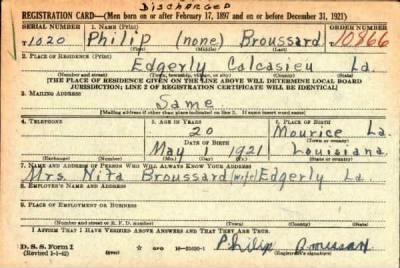 Discharged
REGISTRATION CARD—(Men born on or after February 17, 1897 and on or before December 31, 1921)
SERIAL NUMBER 1. NAME (Print) ORDER NUMBER
T1020 Philip (none) Broussard 10866
(First) (Middle) (Last)
2. PLACE OF RESIDENCE (Print)
Edgerly Calcasieu La.
(Number and street) (Town, township, village, or city) (County) (State)
[THE PLACE OF RESIDENCE GIVEN ON THE LINE ABOVE WILL DETERMINE LOCAL BOARD
JURISDICTION; LINE 2 OF REGISTRATION CERTIFICATE WILL BE IDENTICAL]
3. MAILING ADDRESS
Same
[Mailing address if other than place indicated on line 2. If same insert word same]
4. TELEPHONE 5. AGE IN YEARS 6. PLACE OF BIRTH
20 Mourice La
DATE OF BIRTH (Town or county)
May 1 1921 Louisiana
(Exchange) (Number) (Mo.) (Day) (Yr.) (State or country)
7. NAME AND ADDRESS OF PERSON WHO WILL ALWAYS KNOW YOUR ADDRESS
Mrs. Nita Broussard (wife) Edgerly La.
8. EMPLOYER'S NAME AND ADDRESS
9. PLACE OF EMPLOYMENT OR BUSINESS
(Number and street or R. F. D. number) (Town) (County) (State)
I AFFIRM THAT I HAVE VERIFIED ABOVE ANSWERS AND THAT THEY ARE TRUE.
D. S. S. Form 1
(Revised 1-1-42) (over) 16—21630-1 Philip Broussard
(Registrant's signature)